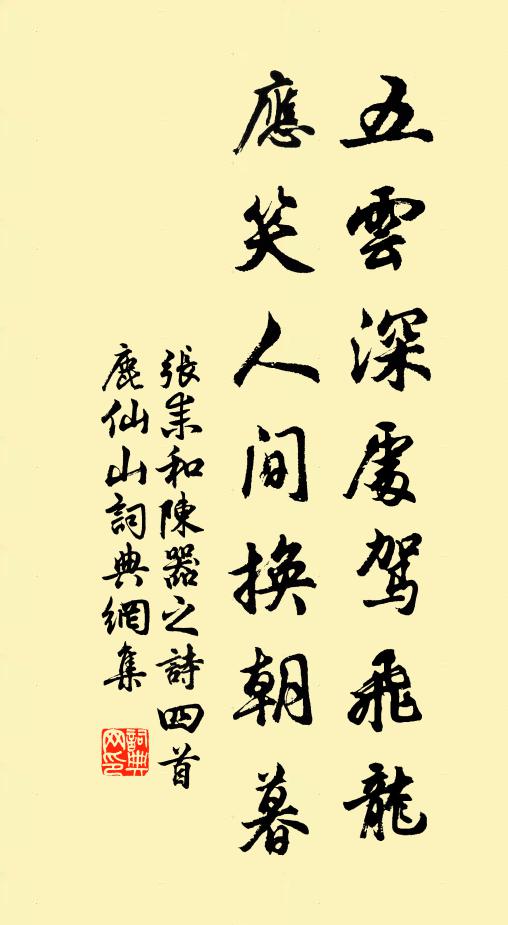 五雲深處駕飛龍
應笑人間換朝暮
張耒和陳器之詩四首
鹿仙山詞典網集
詞典
网印